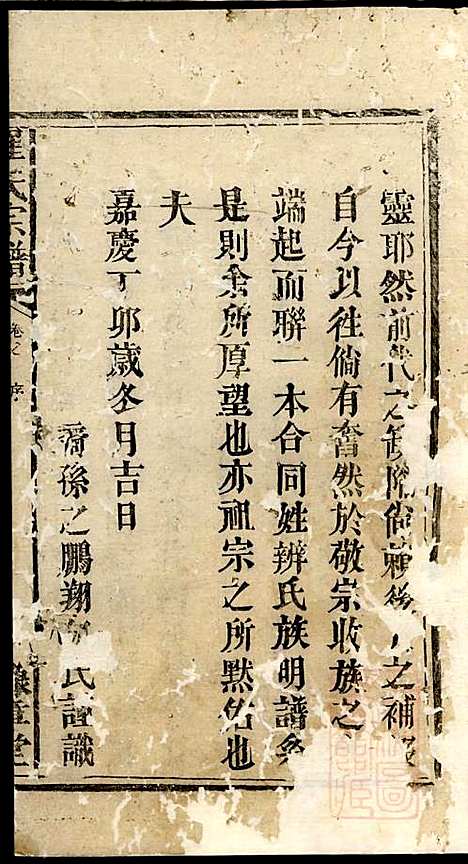 靈耶然前代之缺陷尚賴後之補
自今以徃倘有奮然於敬宗收族之
端起而聯一本合同姓辨氏族明譜系
是則余所厚望也亦祖宗之所默佑也
夫
嘉慶丁卯歲冬月吉日
裔孫之鵬翔氏謹識
氏宗譜
卷之 序
堂